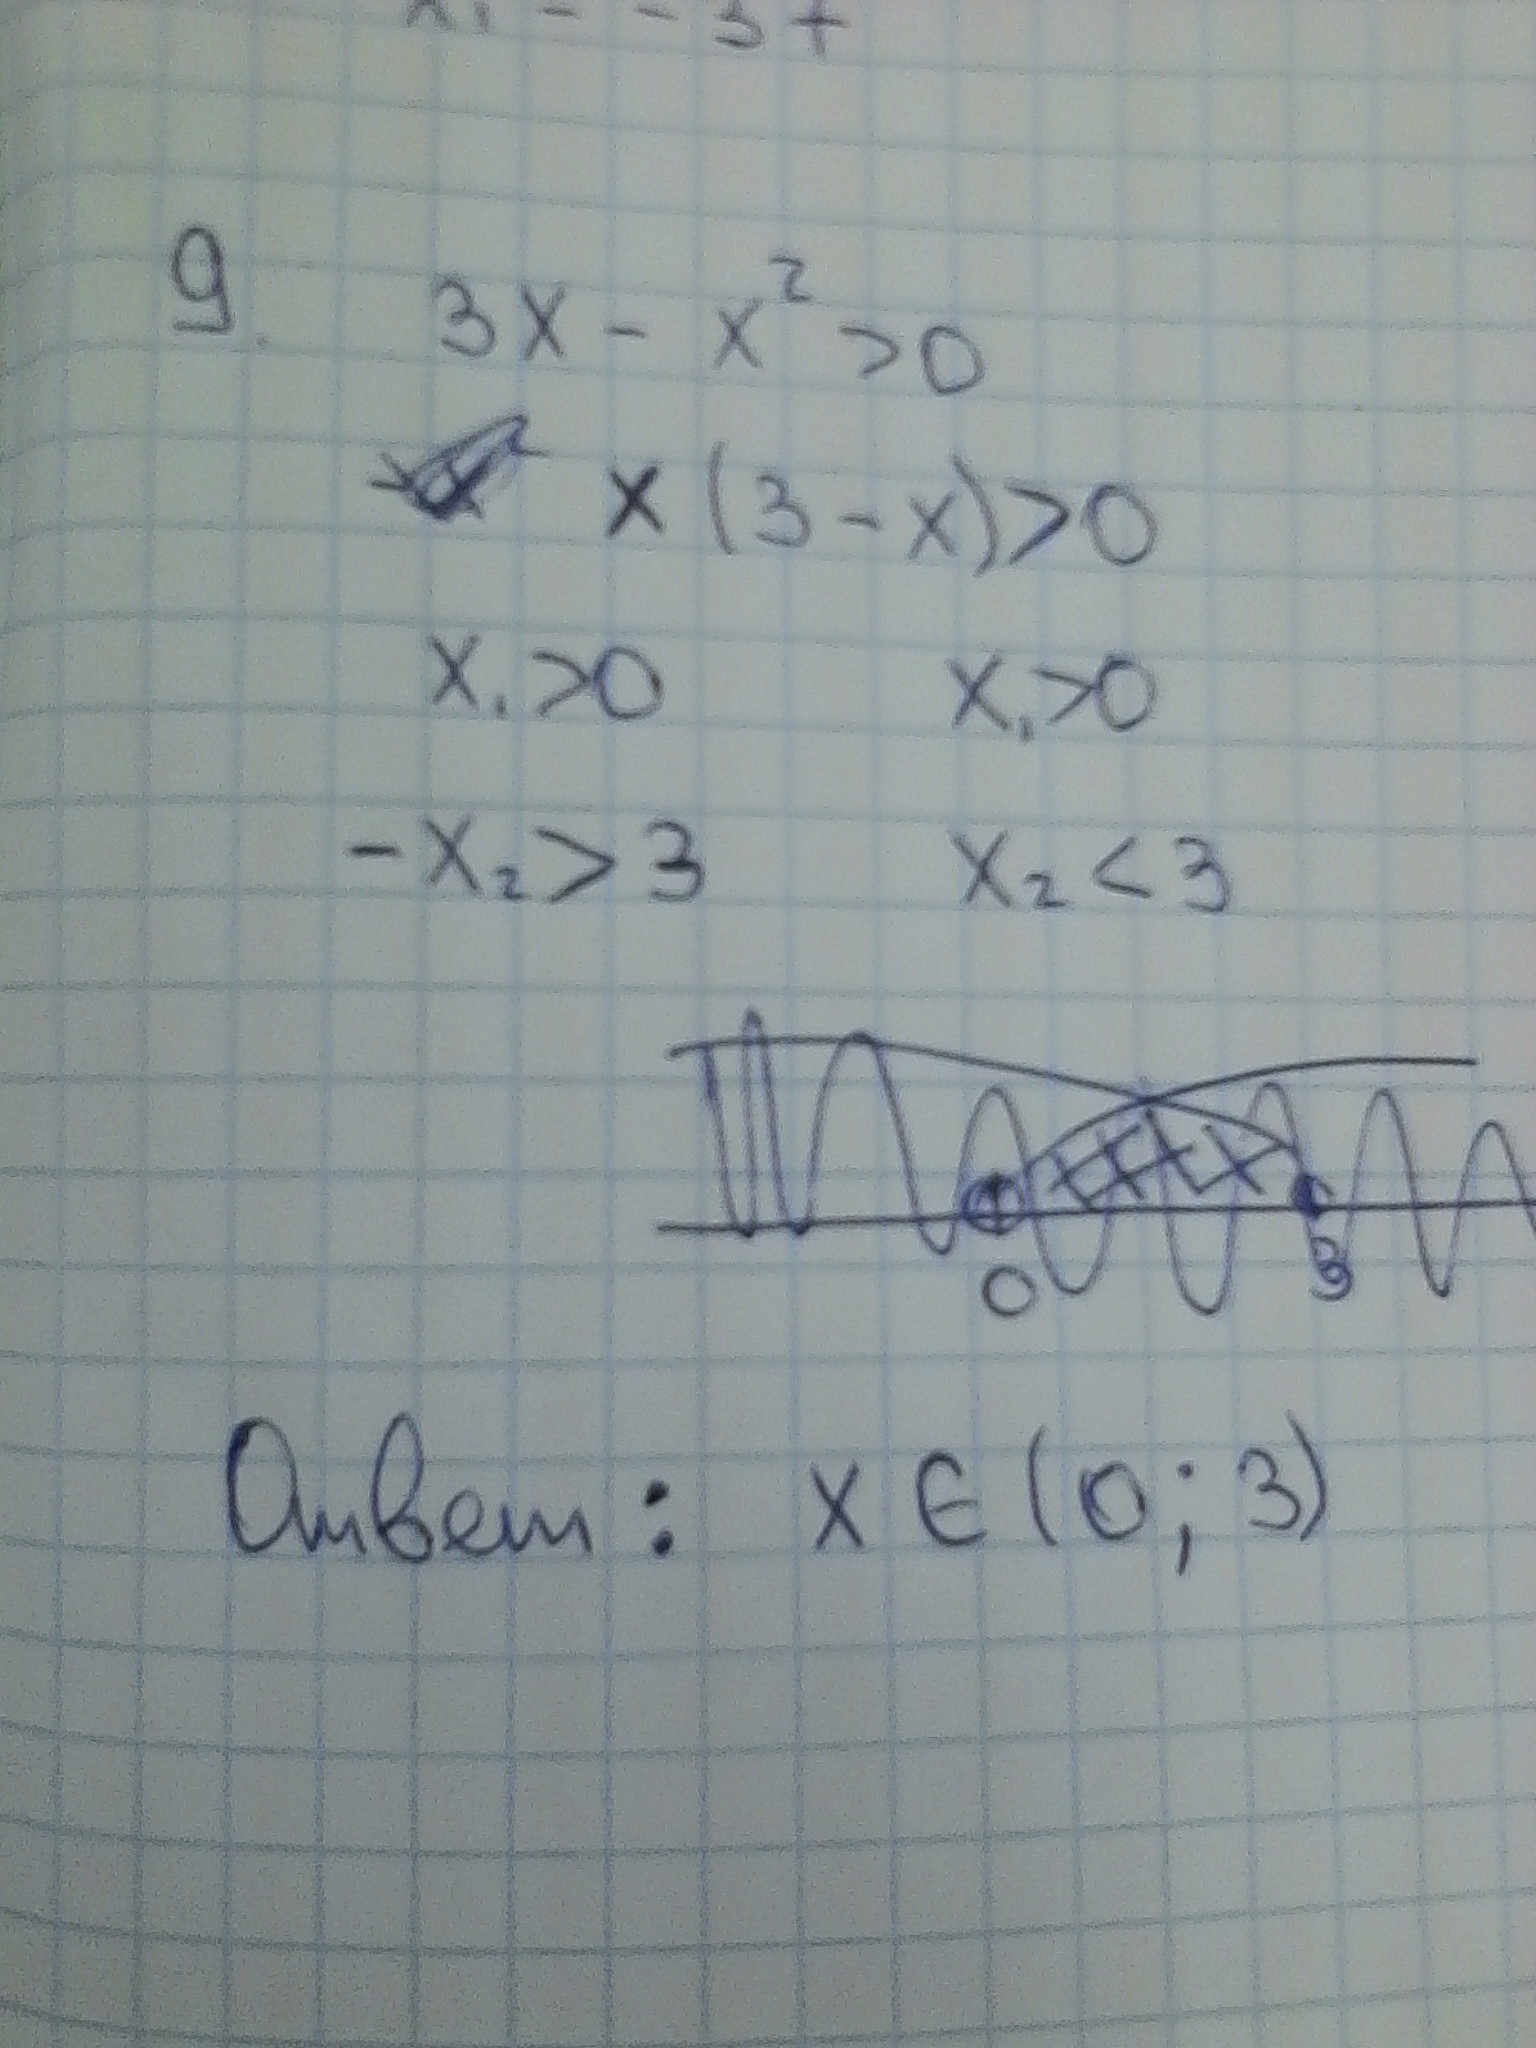 9. 3x - x² >0
x (3-x)>0
x₁ >0 x₁>0
-x₂ > 3 x₂ < 3
0 3
Ответ: x ∈ (0; 3)